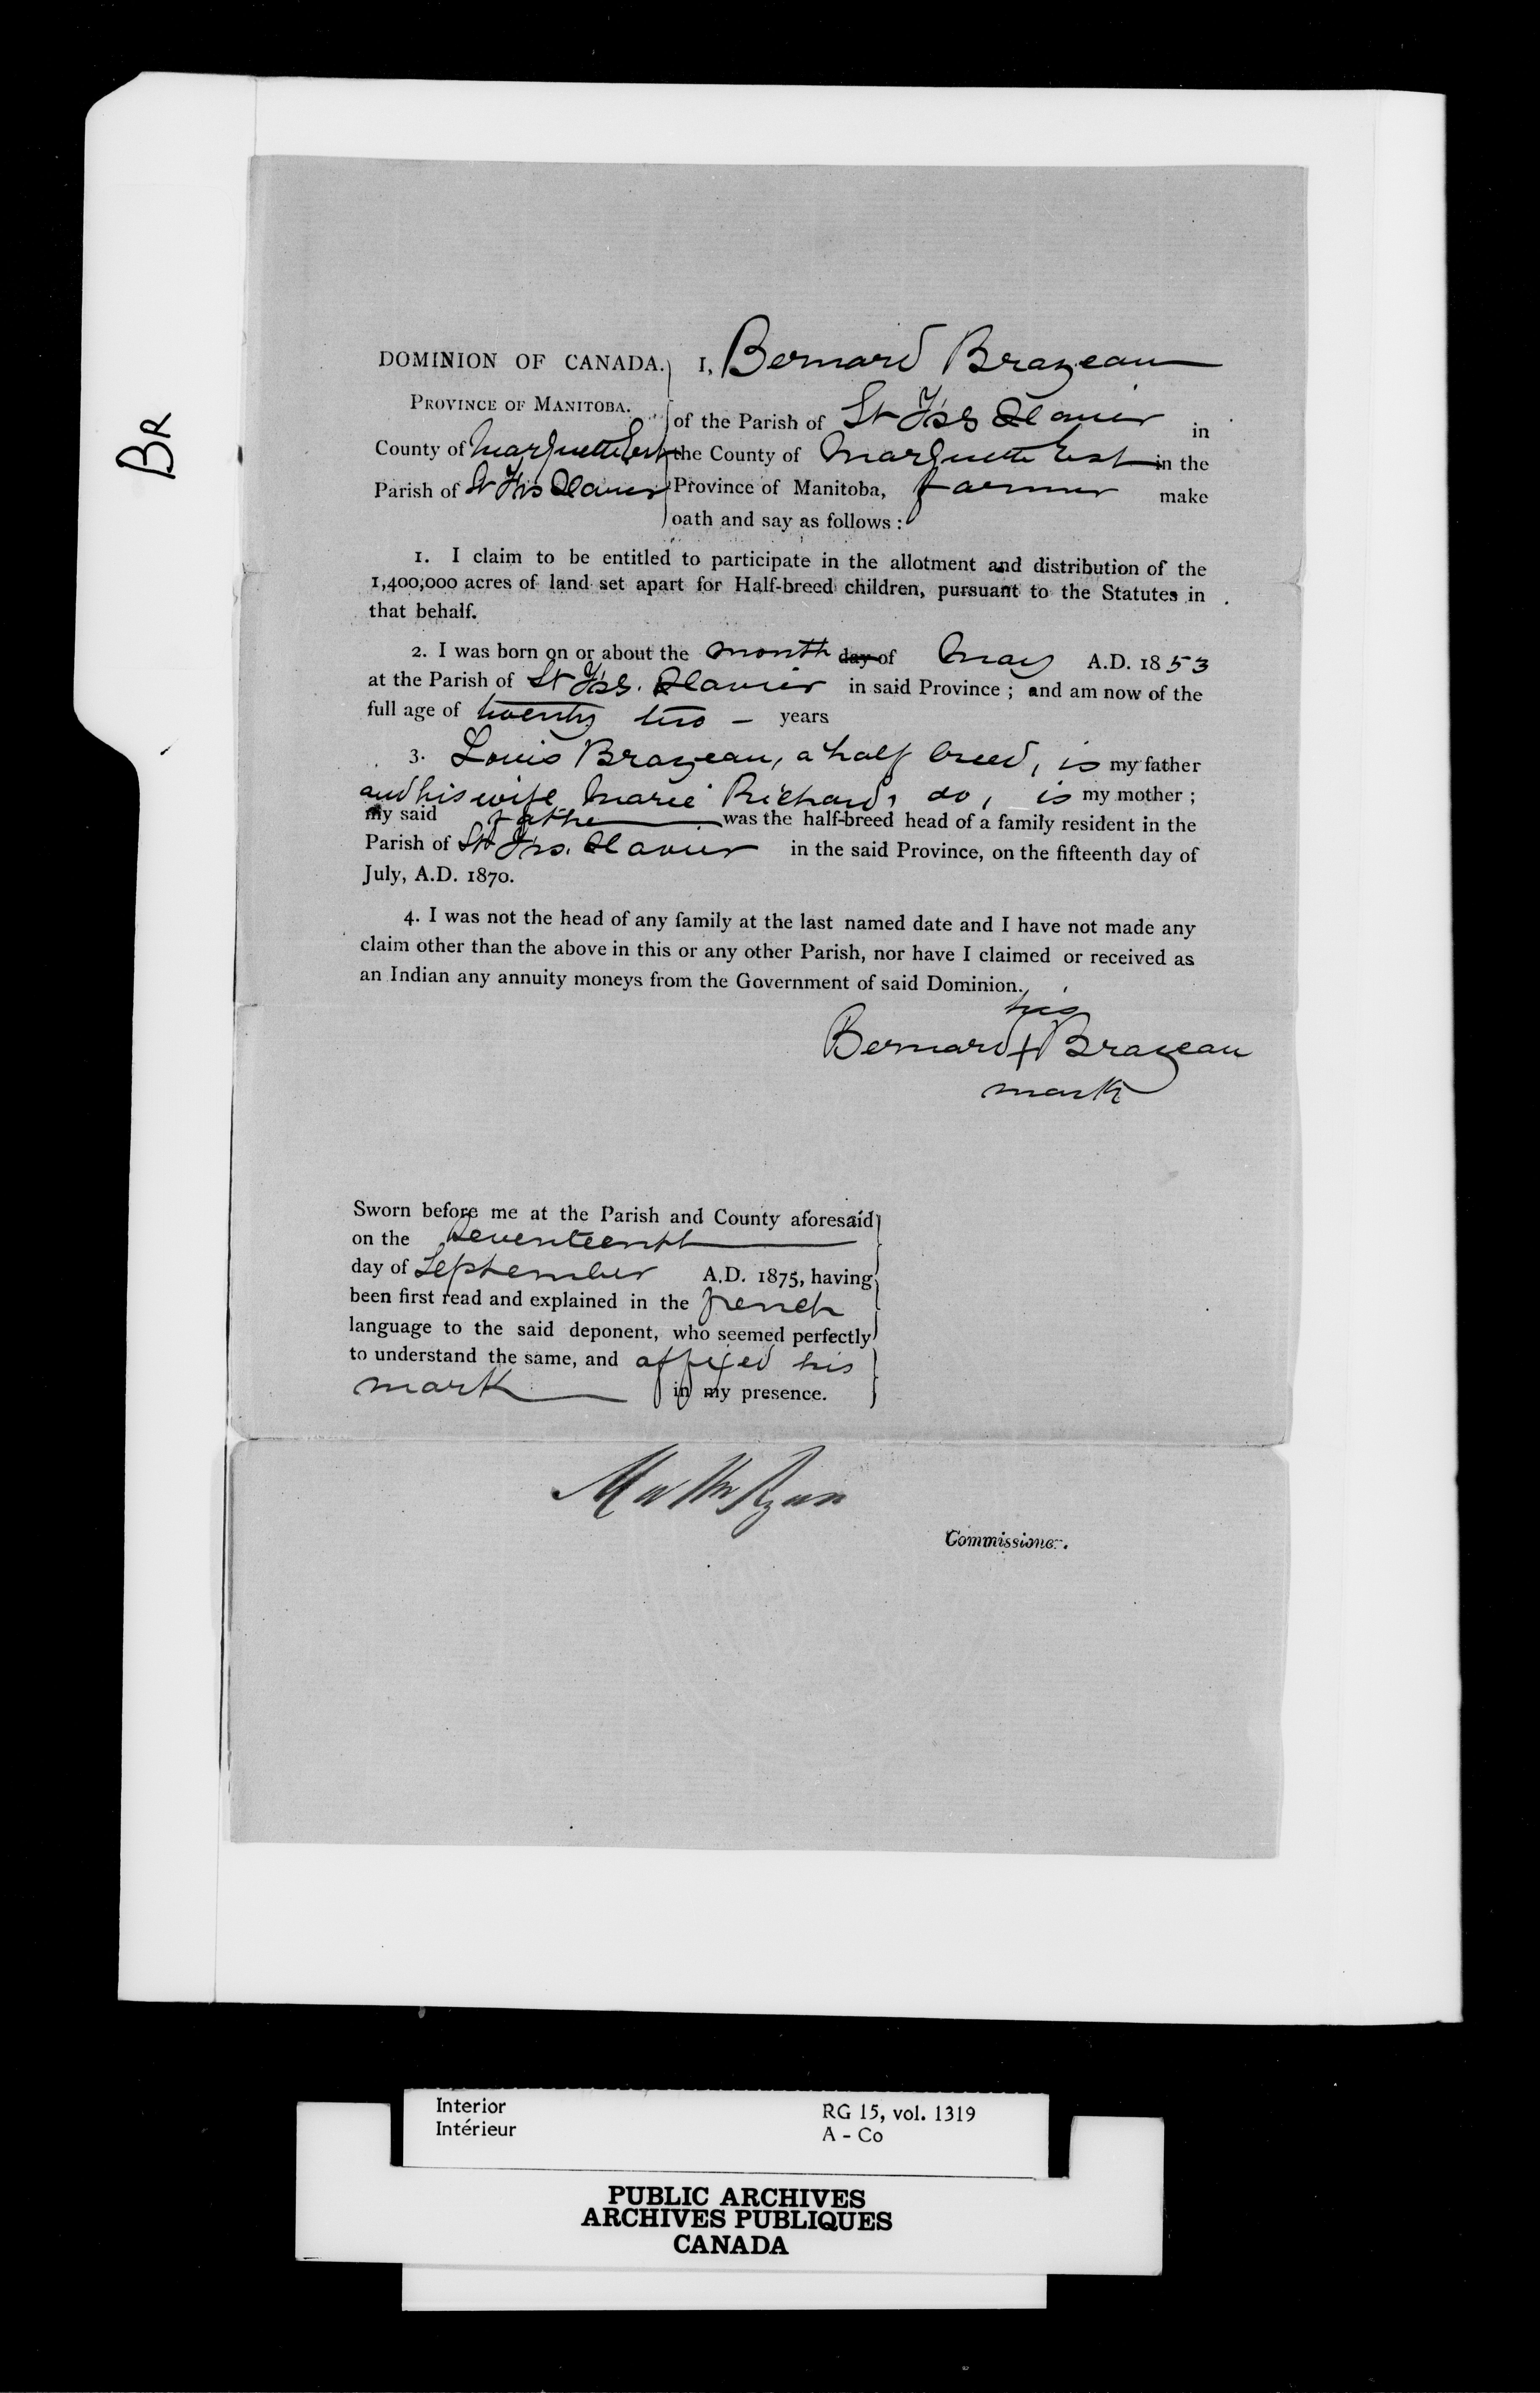 BR
DOMINION OF CANADA. I, Bernard Brazeau
PROVINCE OF MANITOBA.
of the Parish of St Frs Xavier in
County of Marquette East the County of Marquette East in the
Parish of St Frs Xavier Province of Manitoba, farmer make
oath and say as follows:
1. I claim to be entitled to participate in the allotment and distribution of the
1,400,000 acres of land set apart for Half-breed children, pursuant to the Statutes in
that behalf.
2. I was born on or about the month day of May A.D. 1853
at the Parish of St Frs. Xavier in said Province; and am now of the
full age of twenty two - years
3. Louis Brazeau, a half breed, is my father
and his wife Marie Richard, do, is my mother;
my said father was the half-breed head of a family resident in the
Parish of St Frs. Xavier in the said Province, on the fifteenth day of
July, A.D. 1870.
4. I was not the head of any family at the last named date and I have not made any
claim other than the above in this or any other Parish, nor have I claimed or received as
an Indian any annuity moneys from the Government of said Dominion.
his
Bernard + Brazeau
mark
Sworn before me at the Parish and County aforesaid
on the Seventeenth
day of September A.D. 1875, having
been first read and explained in the french
language to the said deponent, who seemed perfectly
to understand the same, and affixed his
mark in my presence.
Matth Ryan
Commissioner.
Interior RG 15, vol. 1319
Intérieur A - Co
PUBLIC ARCHIVES
ARCHIVES PUBLIQUES
CANADA